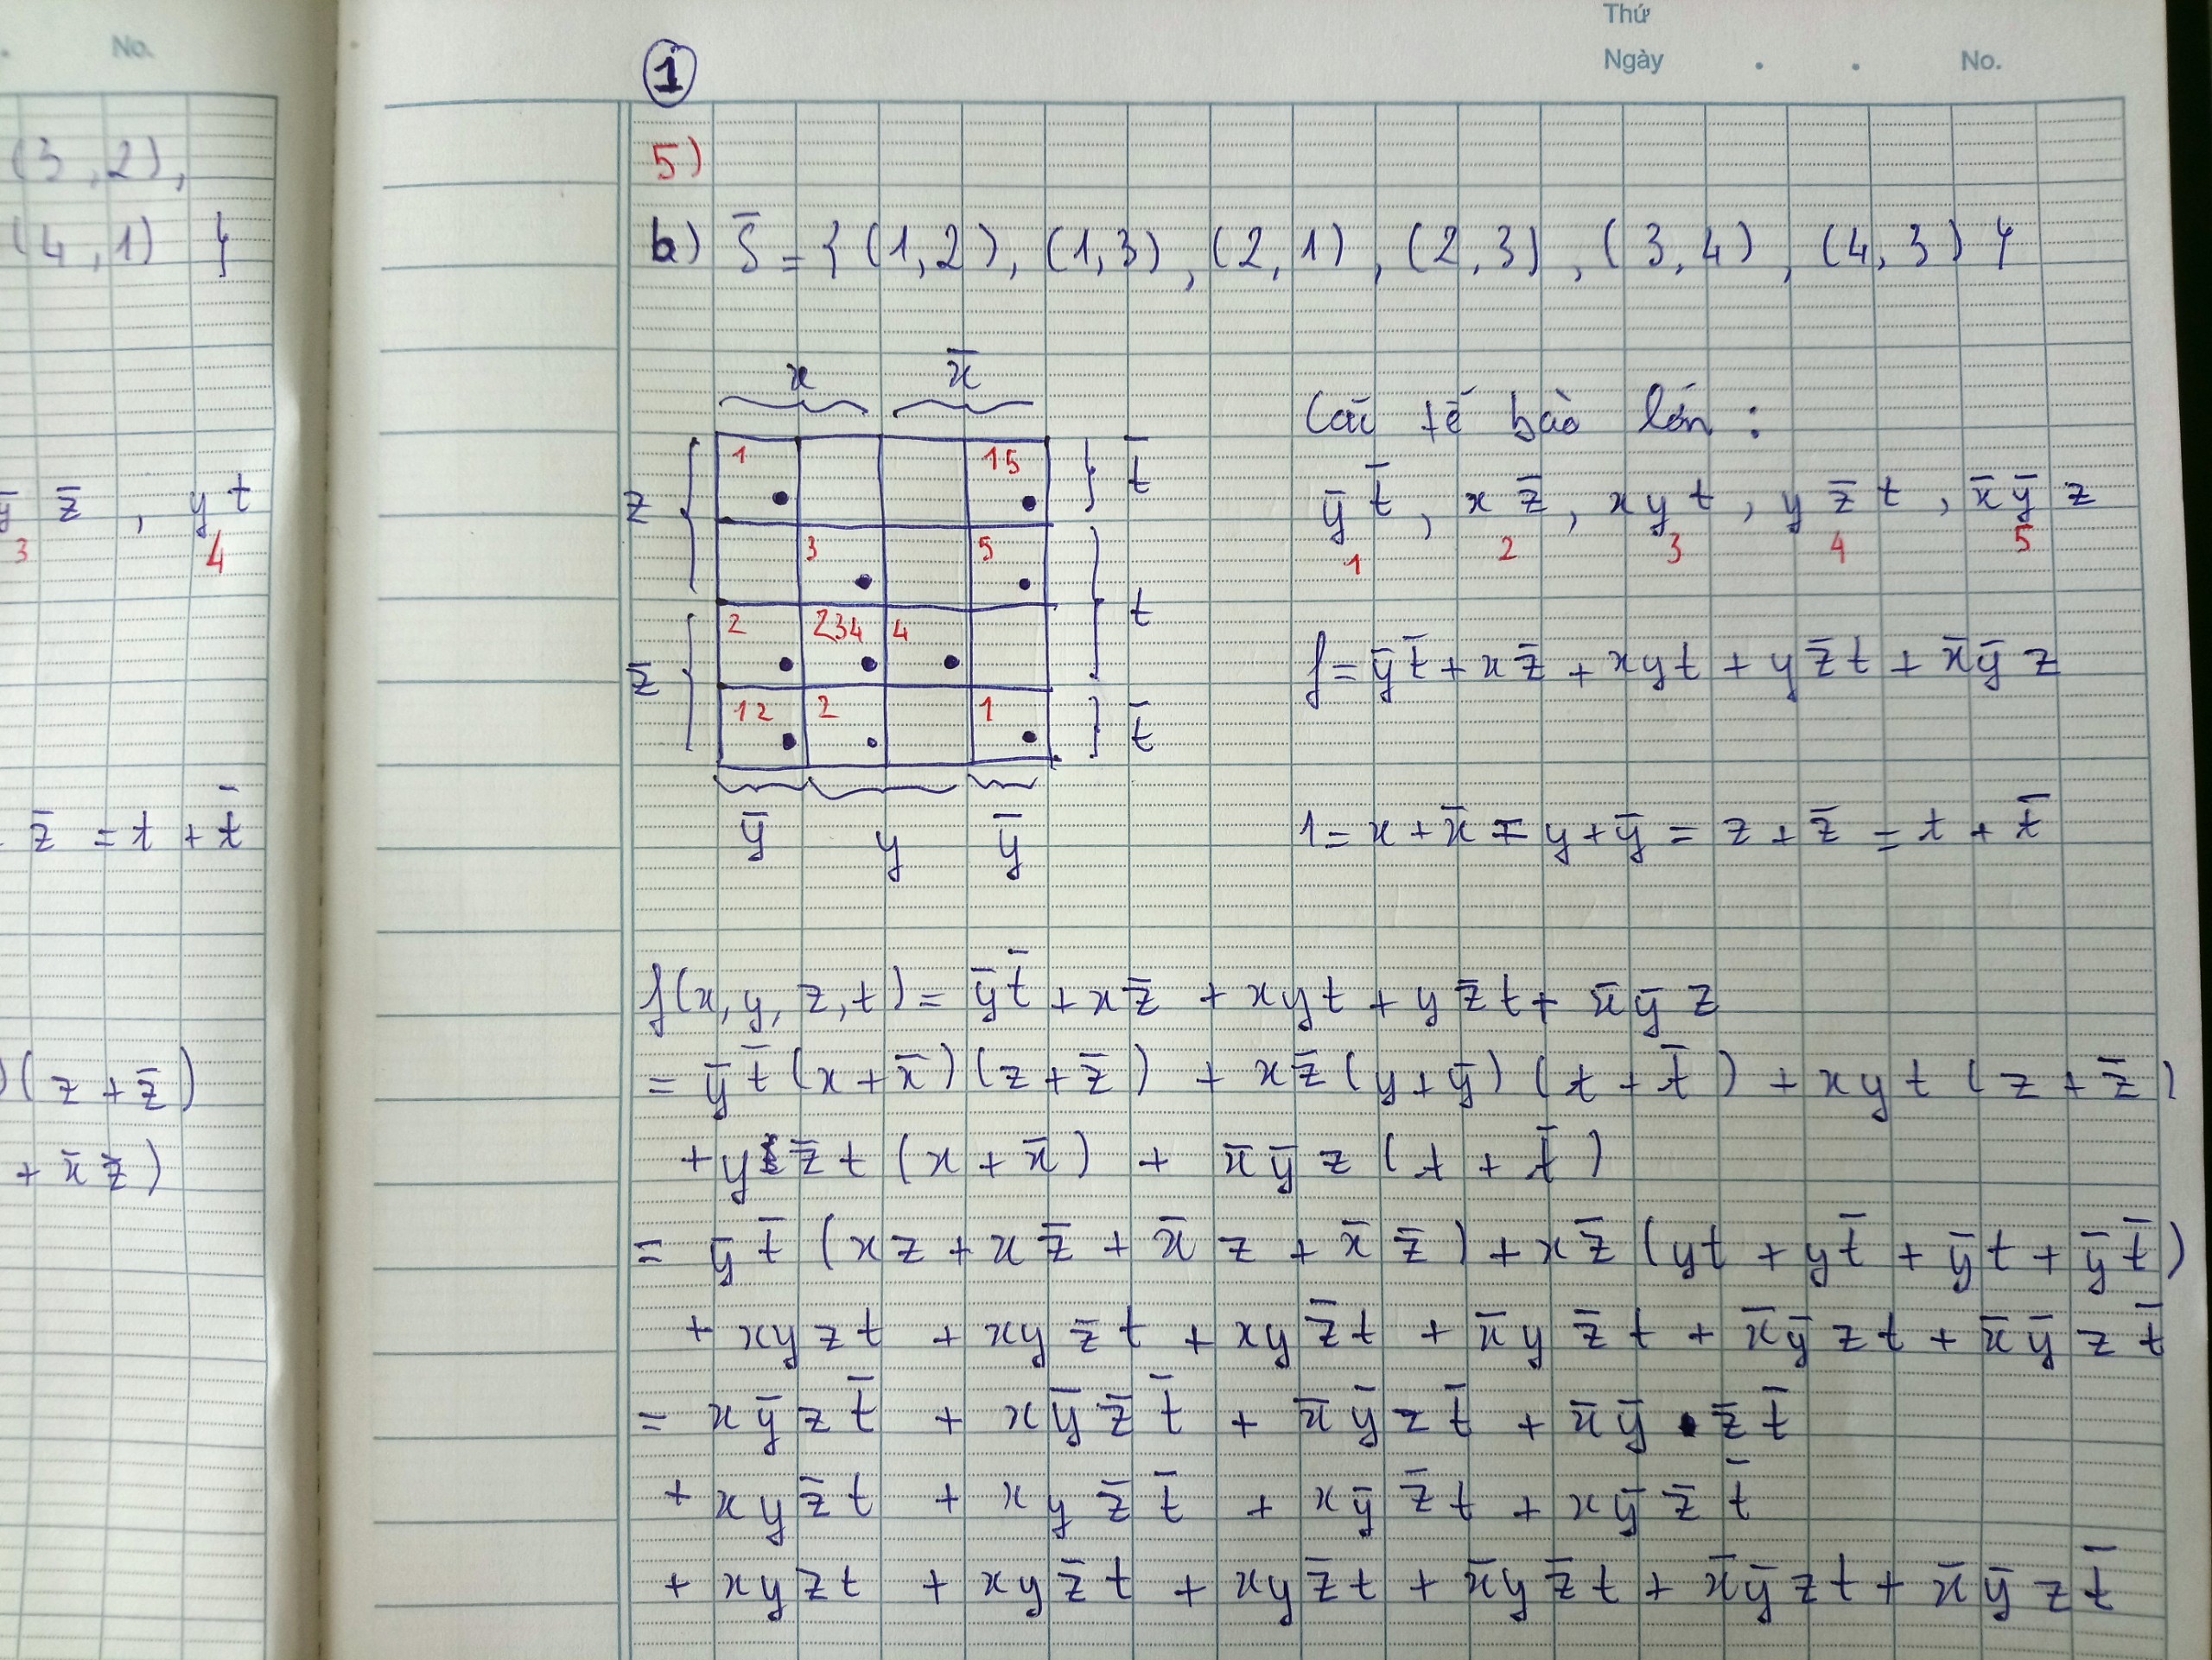 No.
(3,2),
(4,1) }
ȳ z̄ , y t
3 4
z̄ = t + t̄
)(z + z̄)
+ x̄ z̄)
Thứ
Ngày . . No.
1
5)
b) S̄ = { (1,2), (1,3), (2,1), (2,3), (3,4), (4,3) }
x x̄
z z̄
1 15
3 5
2 234 4
12 2 1
t̄
t
t̄
ȳ y ȳ
Các tế bào lớn :
ȳ t̄ , x z̄ , x y t , y z̄ t , x̄ ȳ z
1 2 3 4 5
f = ȳ t̄ + x z̄ + x y t + y z̄ t + x̄ ȳ z
1 = x + x̄ = y + ȳ = z + z̄ = t + t̄
f(x, y, z, t) = ȳ t̄ + x z̄ + x y t + y z̄ t + x̄ ȳ z
= ȳ t̄ (x + x̄)(z + z̄) + x z̄ (y + ȳ)(t + t̄) + x y t (z + z̄)
+ y z̄ t (x + x̄) + x̄ ȳ z (t + t̄)
= ȳ t̄ (x z + x z̄ + x̄ z + x̄ z̄) + x z̄ (y t + y t̄ + ȳ t + ȳ t̄)
+ x y z t + x y z̄ t + x y z̄ t + x̄ y z̄ t + x̄ ȳ z t + x̄ ȳ z t̄
= x ȳ z t̄ + x ȳ z̄ t̄ + x̄ ȳ z t̄ + x̄ ȳ z̄ t̄
+ x y z̄ t + x y z̄ t̄ + x ȳ z̄ t + x ȳ z̄ t̄
+ x y z t + x y z̄ t + x y z̄ t + x̄ y z̄ t + x̄ ȳ z t + x̄ ȳ z t̄